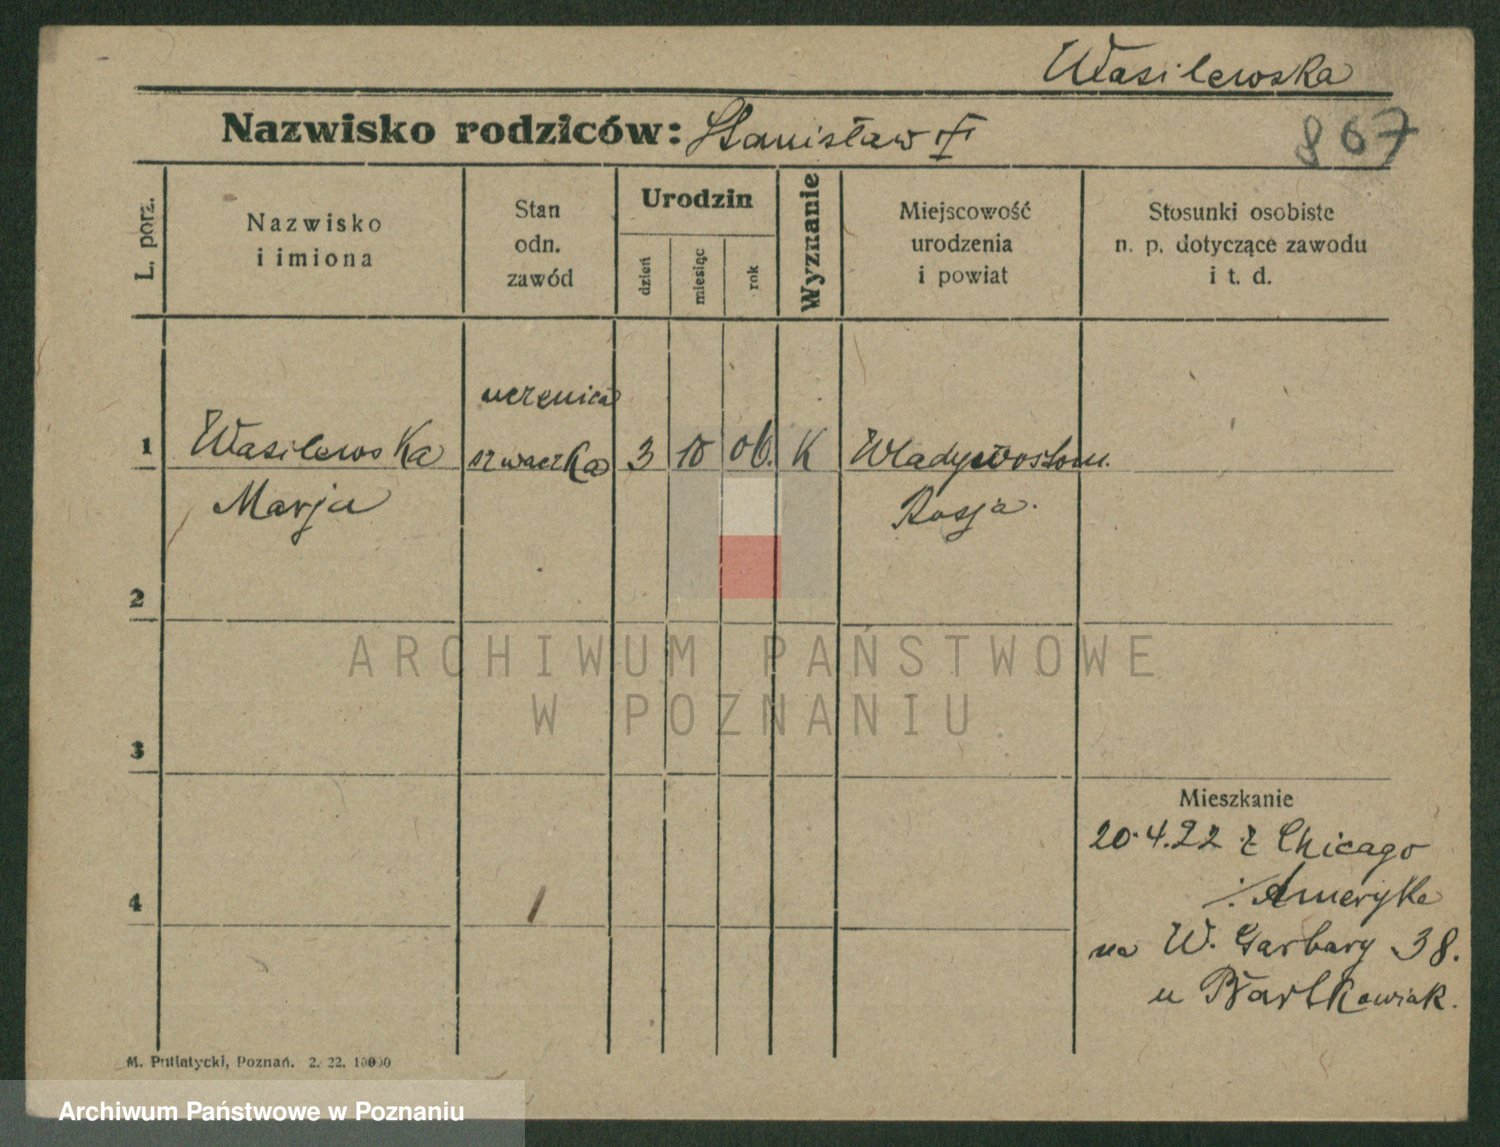 Wasilewska
Nazwisko rodziców: Stanisław
867
L. porz.
Nazwisko
i imiona
Stan
odn.
zawód
Urodzin
dzień
miesiąc
rok
Wyznanie
Miejscowość
urodzenia
i powiat
Stosunki osobiste
n. p. dotyczące zawodu
i t. d.
uczenica
1 Wasilewska szwaczka 3 10 06. K Władywostow.
Marja Rosja.
2
3
4
Mieszkanie
20.4.22 z Chicago
Ameryka
na W. Garbary 38.
u Bartkowiak.
M. Putiatycki, Poznań. 2. 22. 10000
ARCHIWUM PAŃSTWOWE
W POZNANIU
Archiwum Państwowe w Poznaniu